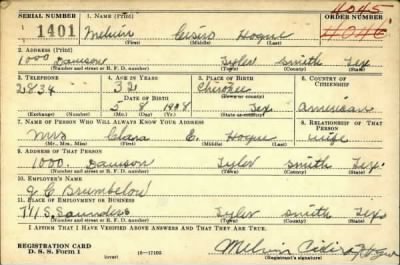 SERIAL NUMBER 1. NAME (Print) ORDER NUMBER
4045
1401 Melvin Cisiro Hogue 4046
(First) (Middle) (Last)
2. ADDRESS (Print)
1000 Dawson Tyler Smith Tex
(Number and street or R. F. D. number) (Town) (County) (State)
3. TELEPHONE 4. AGE IN YEARS 5. PLACE OF BIRTH 6. COUNTRY OF CITIZENSHIP
2834 32 Cherokee
DATE OF BIRTH (Town or county)
5 8 1908 Tex American
(Exchange) (Number) (Mo.) (Day) (Yr.) (State or country)
7. NAME OF PERSON WHO WILL ALWAYS KNOW YOUR ADDRESS 8. RELATIONSHIP OF THAT PERSON
Mrs Clara E. Hogue wife
(Mr., Mrs., Miss) (First) (Middle) (Last)
9. ADDRESS OF THAT PERSON
1000. Dawson Tyler Smith Tex.
(Number and street or R. F. D. number) (Town) (County) (State)
10. EMPLOYER'S NAME
J. C. Brumbelow
11. PLACE OF EMPLOYMENT OR BUSINESS
711 S. Saunders Tyler Smith Tex
(Number and street or R. F. D. number) (Town) (County) (State)
I AFFIRM THAT I HAVE VERIFIED ABOVE ANSWERS AND THAT THEY ARE TRUE.
REGISTRATION CARD
D. S. S. Form 1 (over) 16—17105 Melvin Hogue
(Registrant's signature)